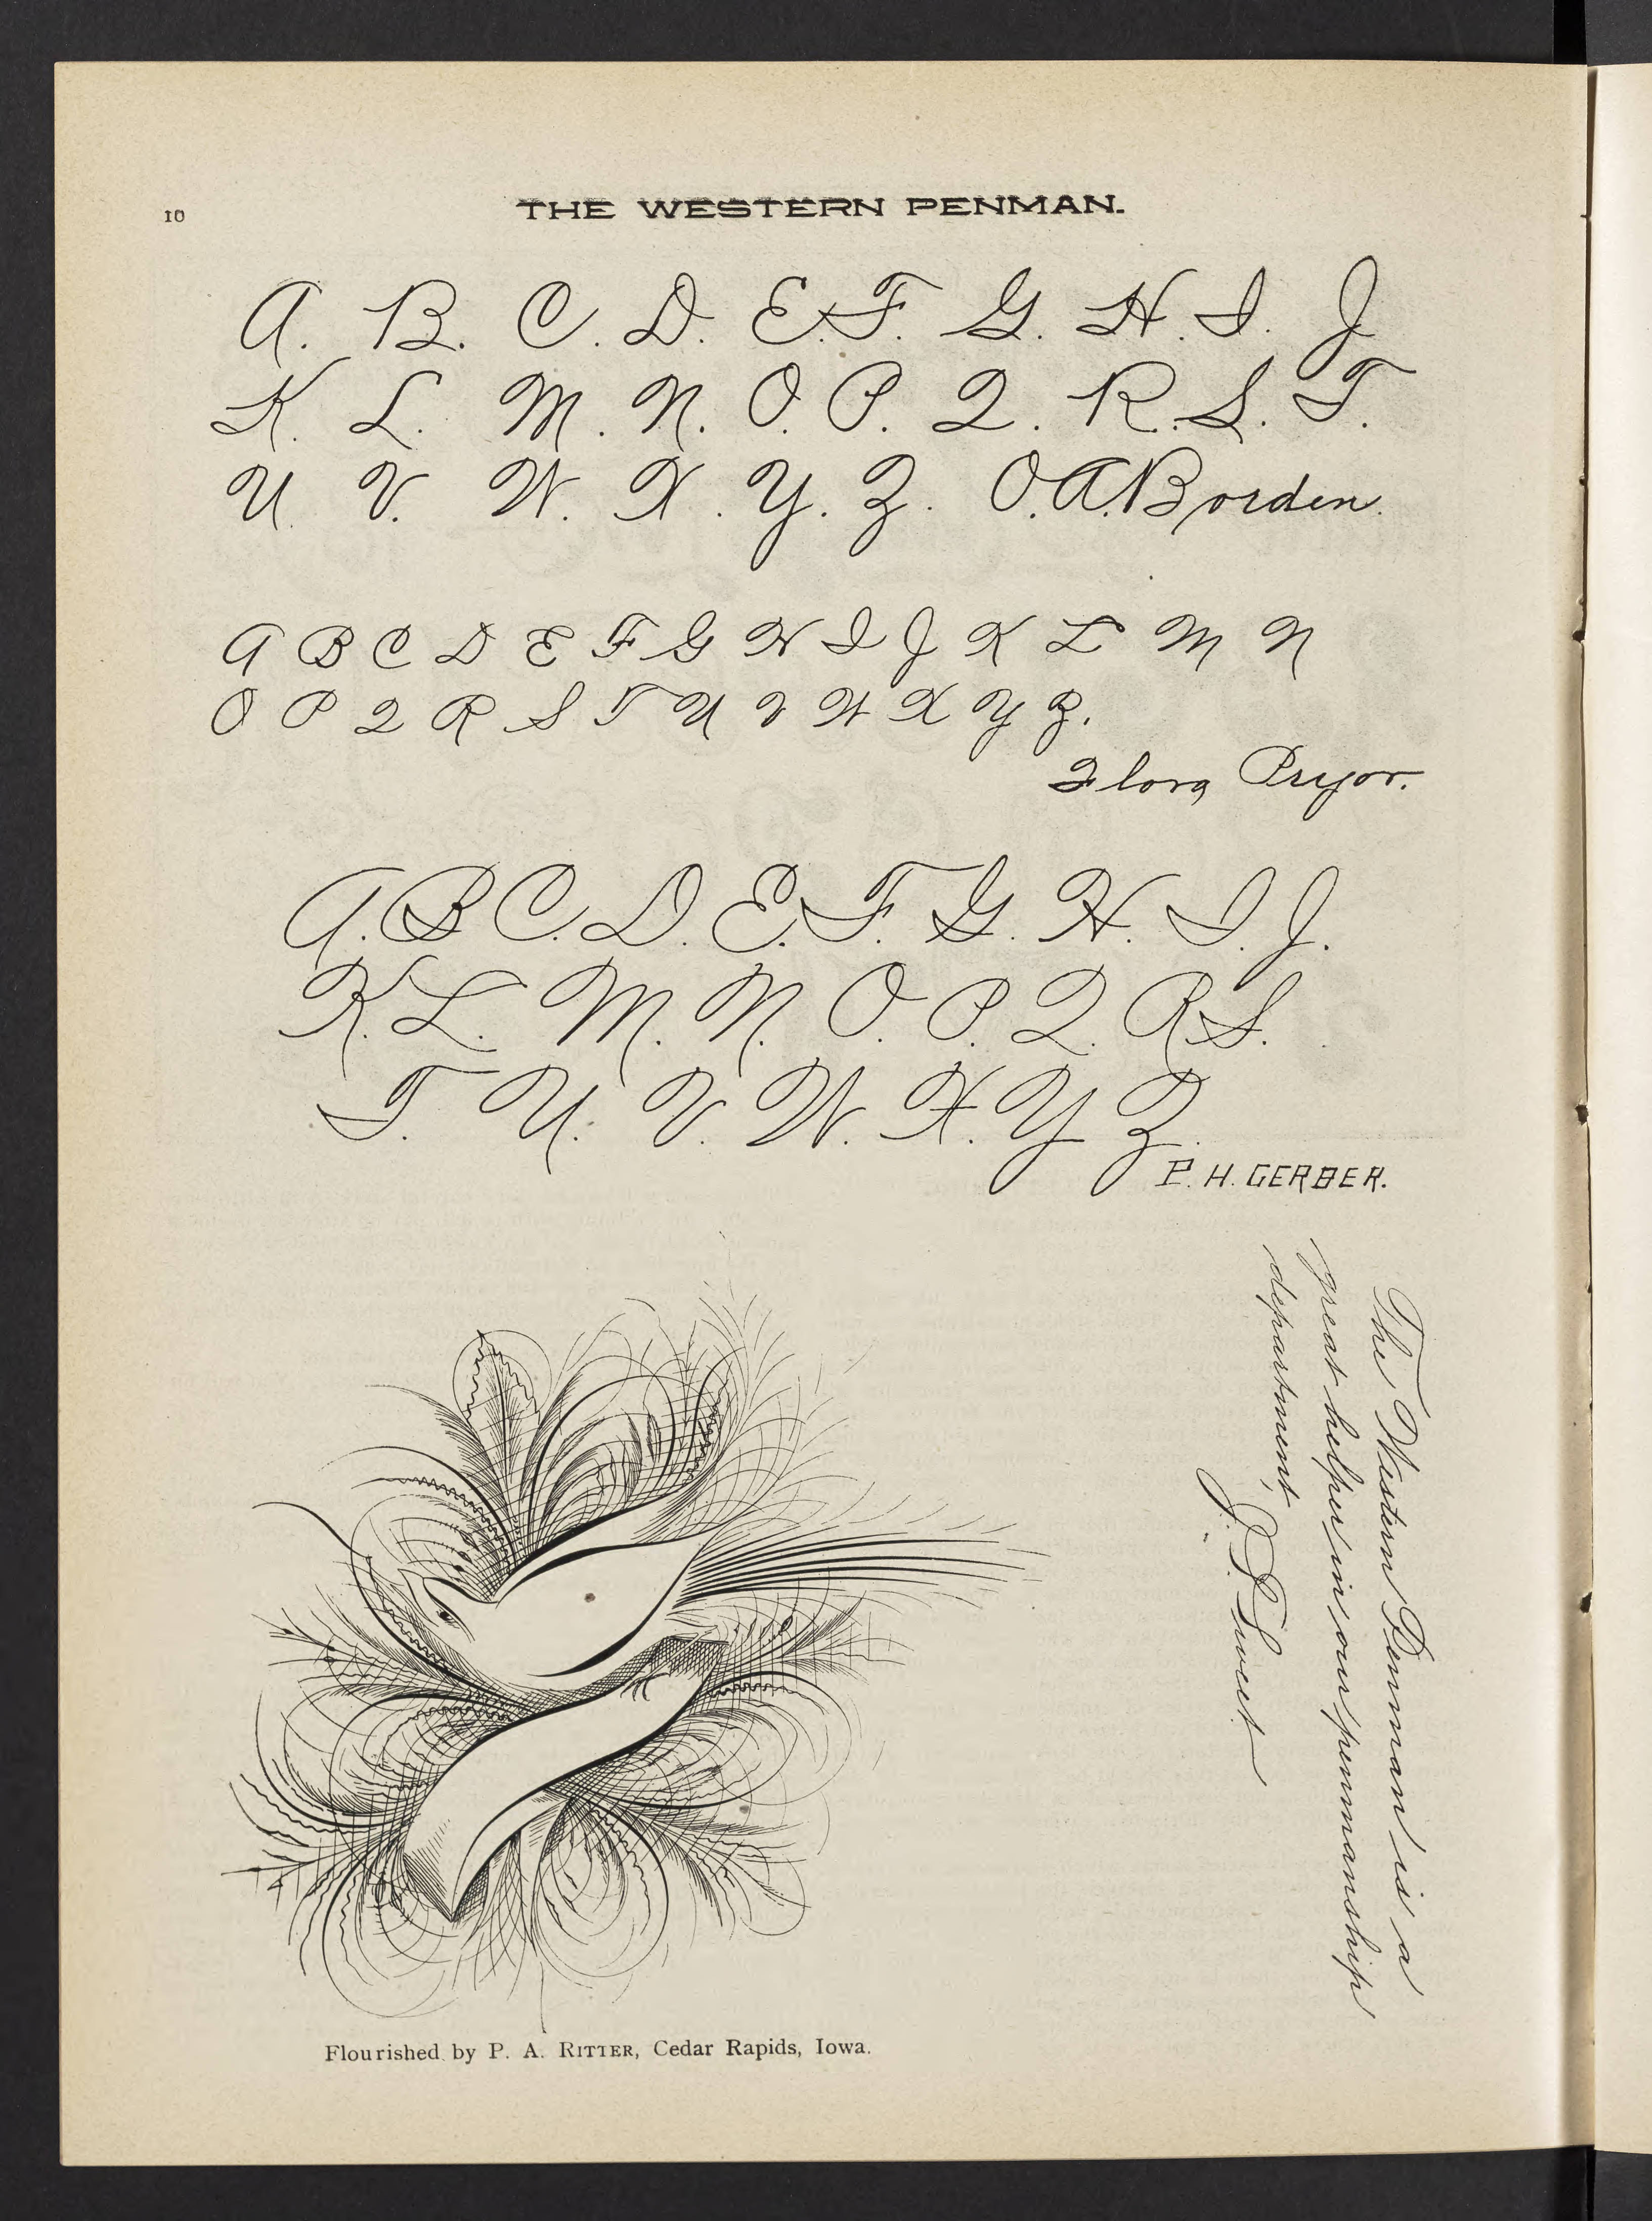 10
THE WESTERN PENMAN.
A. B. C. D. E. F. G. H. I. J
K. L. M. N. O. P. Q. R. S. T.
U. V. W. X. Y. Z. O. A. Borden.
A B C D E F G H I J K L M N
O P Q R S T U V W X Y Z.
Flora Pryor.
A. B C. D. E. F. G. H. I. J.
K. L. M. N. O. P. Q. R S.
T. U. V. W. X. Y Z.
P. H. GERBER.
The Western Penman is a
great helper in our penmanship
department,
Sweet
Flourished by P. A. RITTER, Cedar Rapids, Iowa.